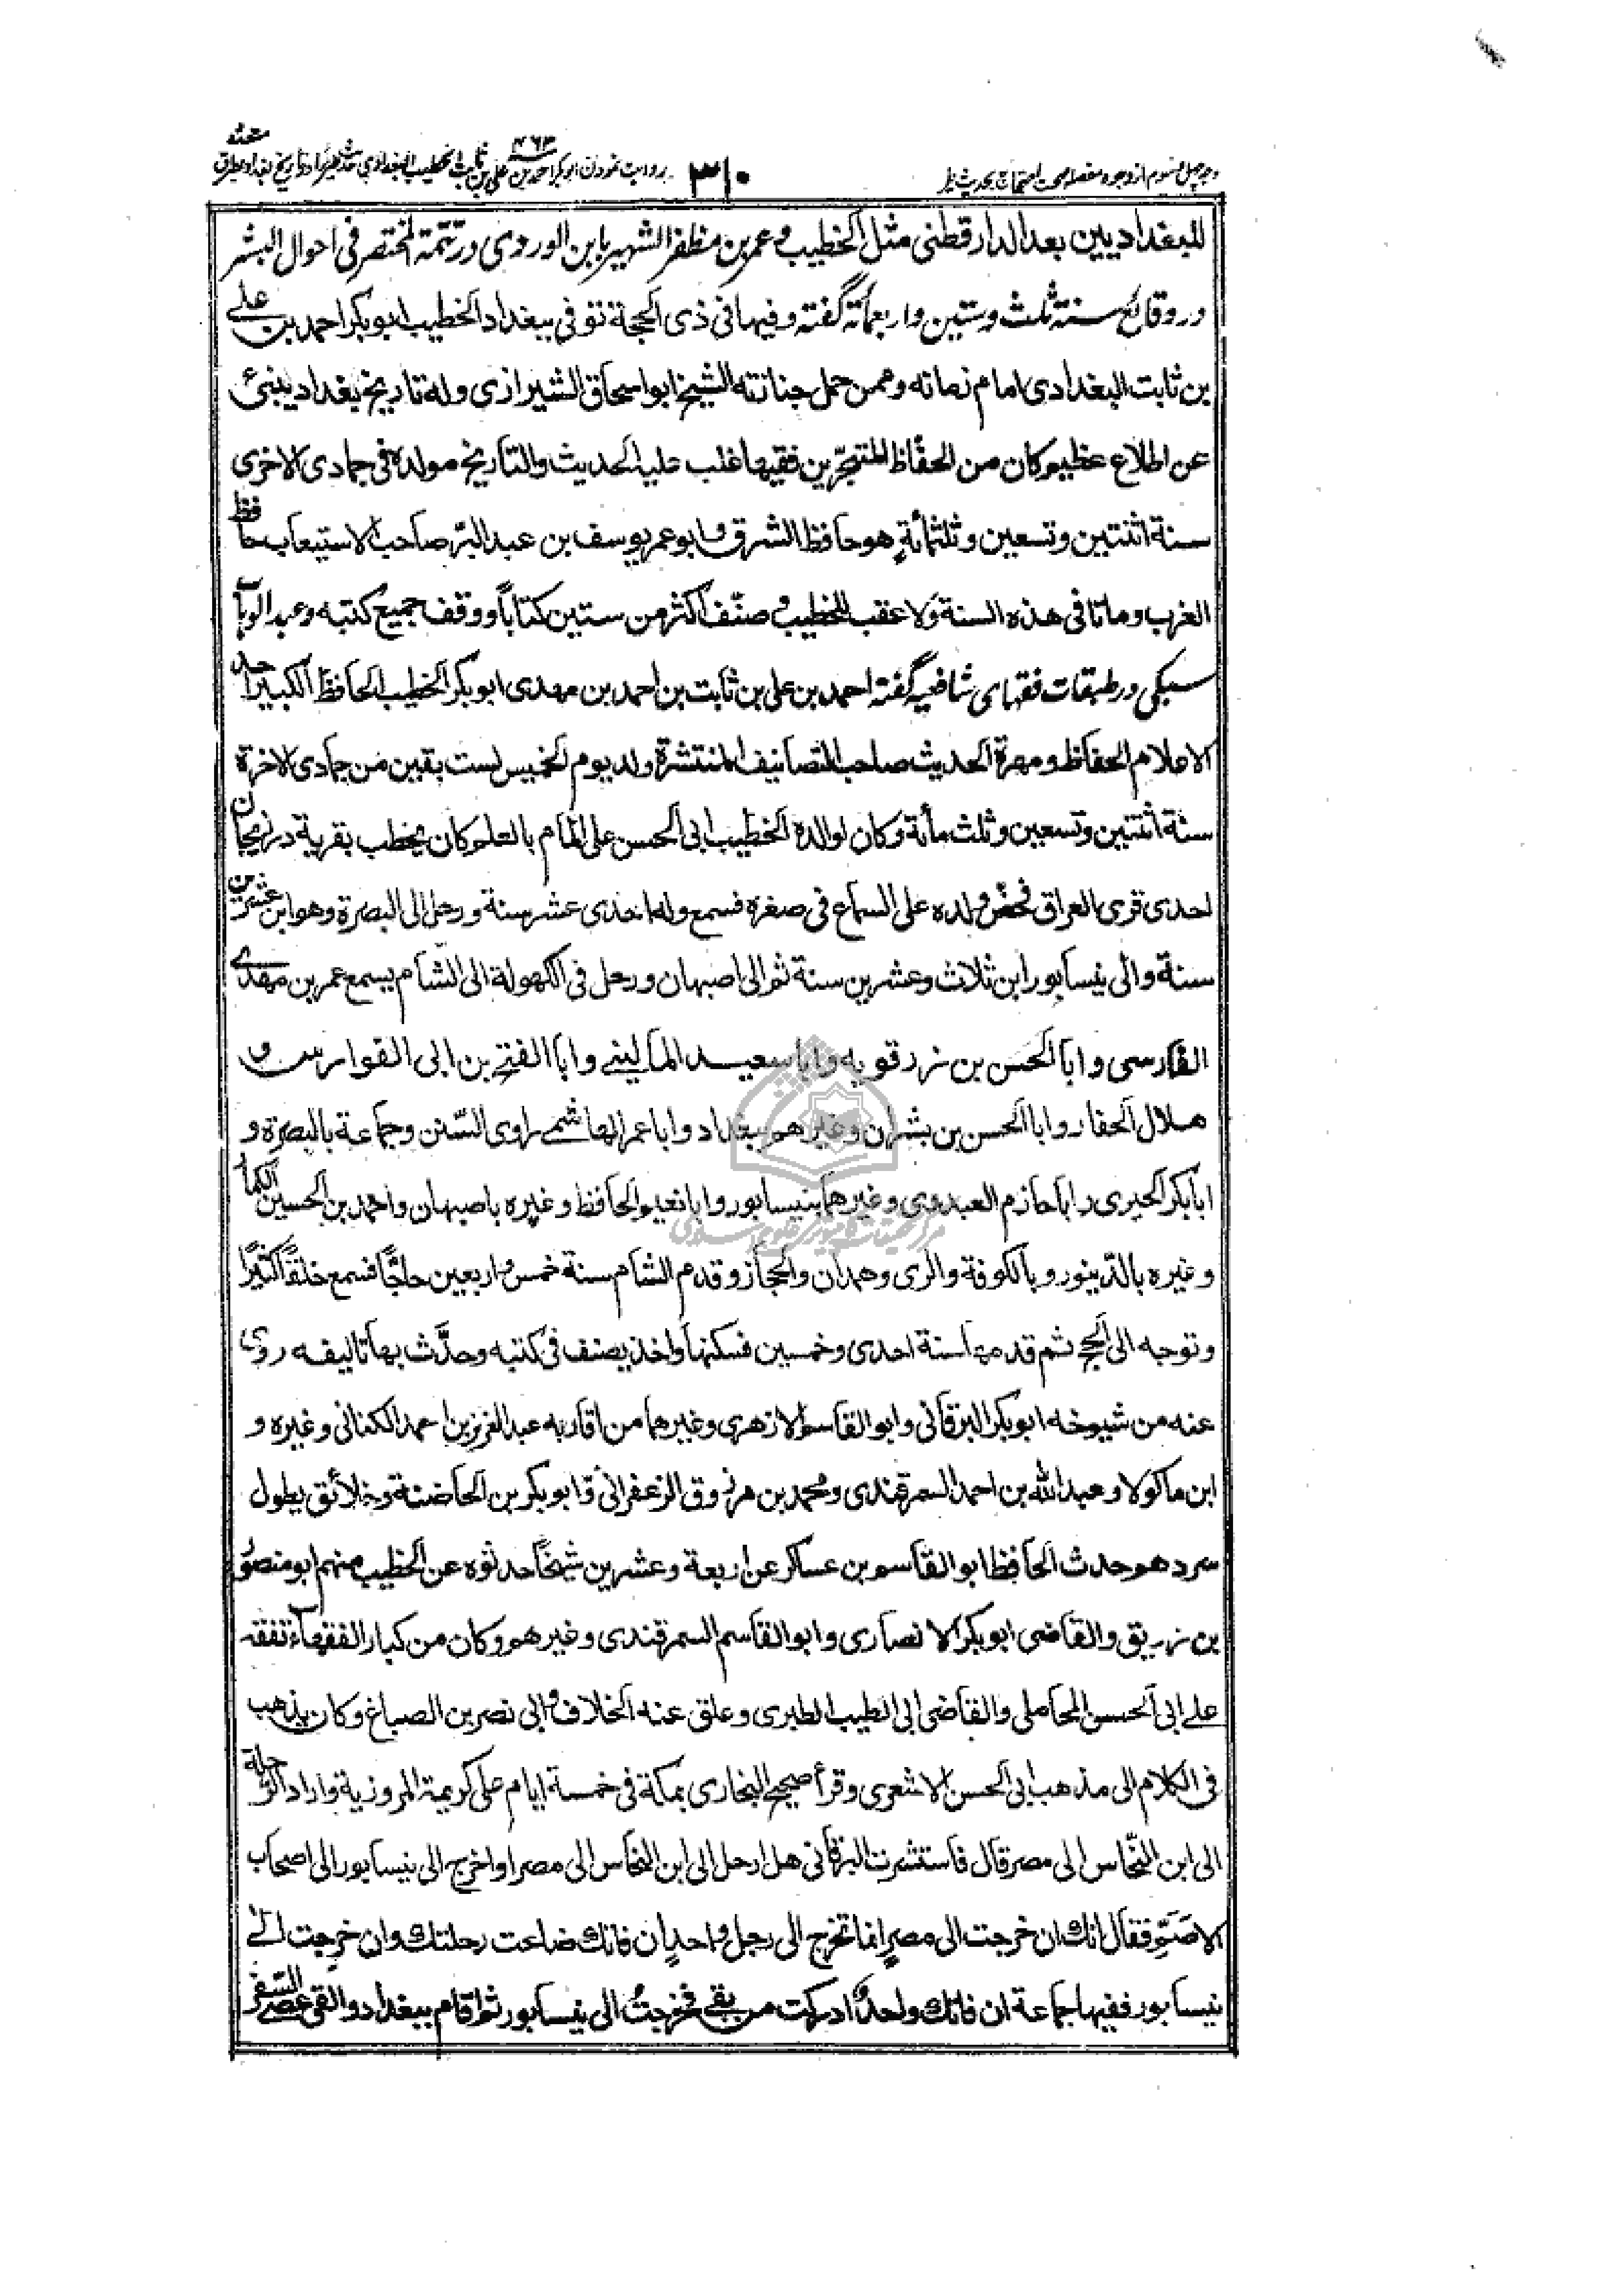 وجه چهل و سوم از وجوه مفصله صحت احتجاج بحدیث طیر
۳۱۰
روایت نمودن ابوبکر احمد بن علی بن ثابت الخطیب البغدادی حدیث طیر را در تاریخ بغداد بطرق متعدده
۴۶۳
للبغدادیین بعد الدارقطنی مثل الخطیب و عمر بن مظفر الشهیر بابن الوردی در تتمة المختصر فی احوال البشر
در وقائع سنة ثلث و ستین و اربعمائة گفته و فیها فی ذی الحجة توفی ببغداد الخطیب ابوبکر احمد بن علی
بن ثابت البغدادی امام زمانه و ممن حمل جنازته الشیخ ابو اسحاق الشیرازی و له تاریخ بغداد ینبئ
عن اطلاع عظیم کان من الحفّاظ المتبحّرین فقیها غلب علیه الحدیث والتاریخ مولده فی جمادی الاخری
سنة اثنتین و تسعین و ثلثمائةٍ هو حافظ الشرق و ابو عمر یوسف بن عبد البرّ صاحب الاستیعاب حافظ
الغرب و ماتا فی هذه السنة و لا عقب للخطیب و صنّف اکثر من ستین کتاباً و وقف جمیع کتبه و عبد الوهاب
سبکی در طبقات فقهای شافعیه گفته احمد بن علی بن ثابت بن احمد بن مهدی ابوبکر الخطیب الحافظ الکبیر احد
الاعلام الحفاظ و مهرة الحدیث صاحب التصانیف المنتشرة ولد یوم الخمیس لست بقین من جمادی الاخرة
سنة اثنتین و تسعین و ثلث مأیة و کان لوالده الخطیب ابی الحسن علی المام بالعلم و کان یخطب بقریة درزیجان
احدی قری العراق فحضّ ولده علی السماع فی صغره فسمع و له احدی عشر سنة و رحل الی البصرة و هو ابن عشرین
سنة و الی نیسابور ابن ثلاث و عشرین سنة ثم الی اصبهان و رحل فی الکهولة الی الشام یسمع عمر بن مهدی
الفارسی و ابا الحسن بن زرقویه و ابا سعید المالینی و ابا الفتح بن ابی الفوارس و
هلال الحفار و ابا الحسن بن بشران و غیرهم ببغداد و ابا عمر الهاشمی راوی السّنن و جماعة بالبصرة و
ابا بکر الحیری و ابا حازم العبدوی و غیرهما بنیسابور و ابا نعیم الحافظ و غیره باصبهان و احمد بن الحسین الکسار
و غیره بالدّینور و بالکوفة و الری و همدان و الحجاز و قدم الشام سنة خمس و اربعین حاجّا فسمع خلقاً کثیرًا
و توجه الی الحج ثم قدمها سنة احدی و خمسین فسکنها و اخذ یصنف فی کتبه و حدّث بها تالیفه روی
عنه من شیوخه ابوبکر البرقانی و ابو القاسم الازهری و غیرهما من اقاربه عبد العزیز بن احمد الکتانی و غیره و
ابن ماکولا و عبد الله بن احمد السمرقندی و محمد بن مرزوق الزعفرانی و ابوبکر بن الخاضبة و خلائق یطول
سردهم و حدث الحافظ ابو القاسم بن عساکر عن اربعة و عشرین شیخًا حدثوه عن الخطیب منهم ابو منصور
بن زریق و القاضی ابوبکر الانصاری و ابو القاسم السمرقندی و غیرهم و کان من کبار الفقهاء تفقه
علی ابی الحسن المحاملی و القاضی ابی الطیب الطبری و علق عنه الخلاف و ابی نصر بن الصباغ و کان یذهب
فی الکلام الی مذهب ابی الحسن الاشعری و قرأ صحیح البخاری بمکة فی خمسة ایام علی کریمة المروزیة و اراد الرحلة
الی ابن النّحاس الی مصر قال فاستشرت البرقانی هل ارحل الی ابن النحاس الی مصر او اخرج الی نیسابور الی اصحاب
الاصَمّ فقال انک ان خرجت الی مصر انما تخرج الی رجل واحد ان فاتک ضاعت رحلتک و ان خرجت الی
نیسابور ففیها جماعة ان فاتک واحد ادرکت من بقی فخرجتُ الی نیسابور ثم اقام ببغداد و القی عصی السّفر
مرکز تحقیقات کامپیوتری علوم اسلامی